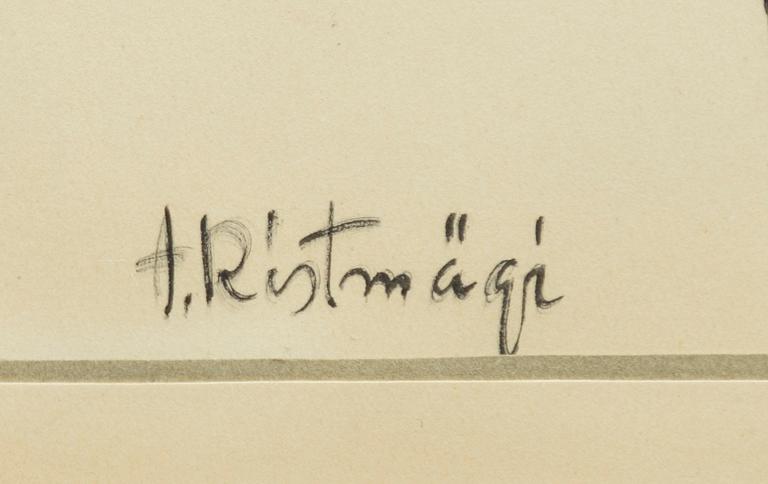 A. Ristmägi